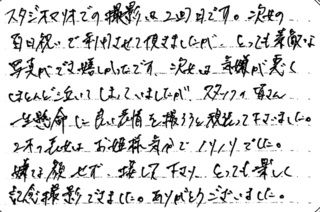 スタジオマリオでの撮影は2回目です。次女の
百日祝いで利用させて頂きましたが、とっても素敵な
写真ができ嬉しかったです。次女は機嫌が悪く
ほとんど泣いてしまっていましたが、スタッフの皆さん
一生懸命に良い表情を撮ろうと頑張って下さいました。
2才の長女はお姫様気分でノリノリでした。
嫌な顔せず、接して下さり、とっても楽しく
記念撮影できました。ありがとうございました。